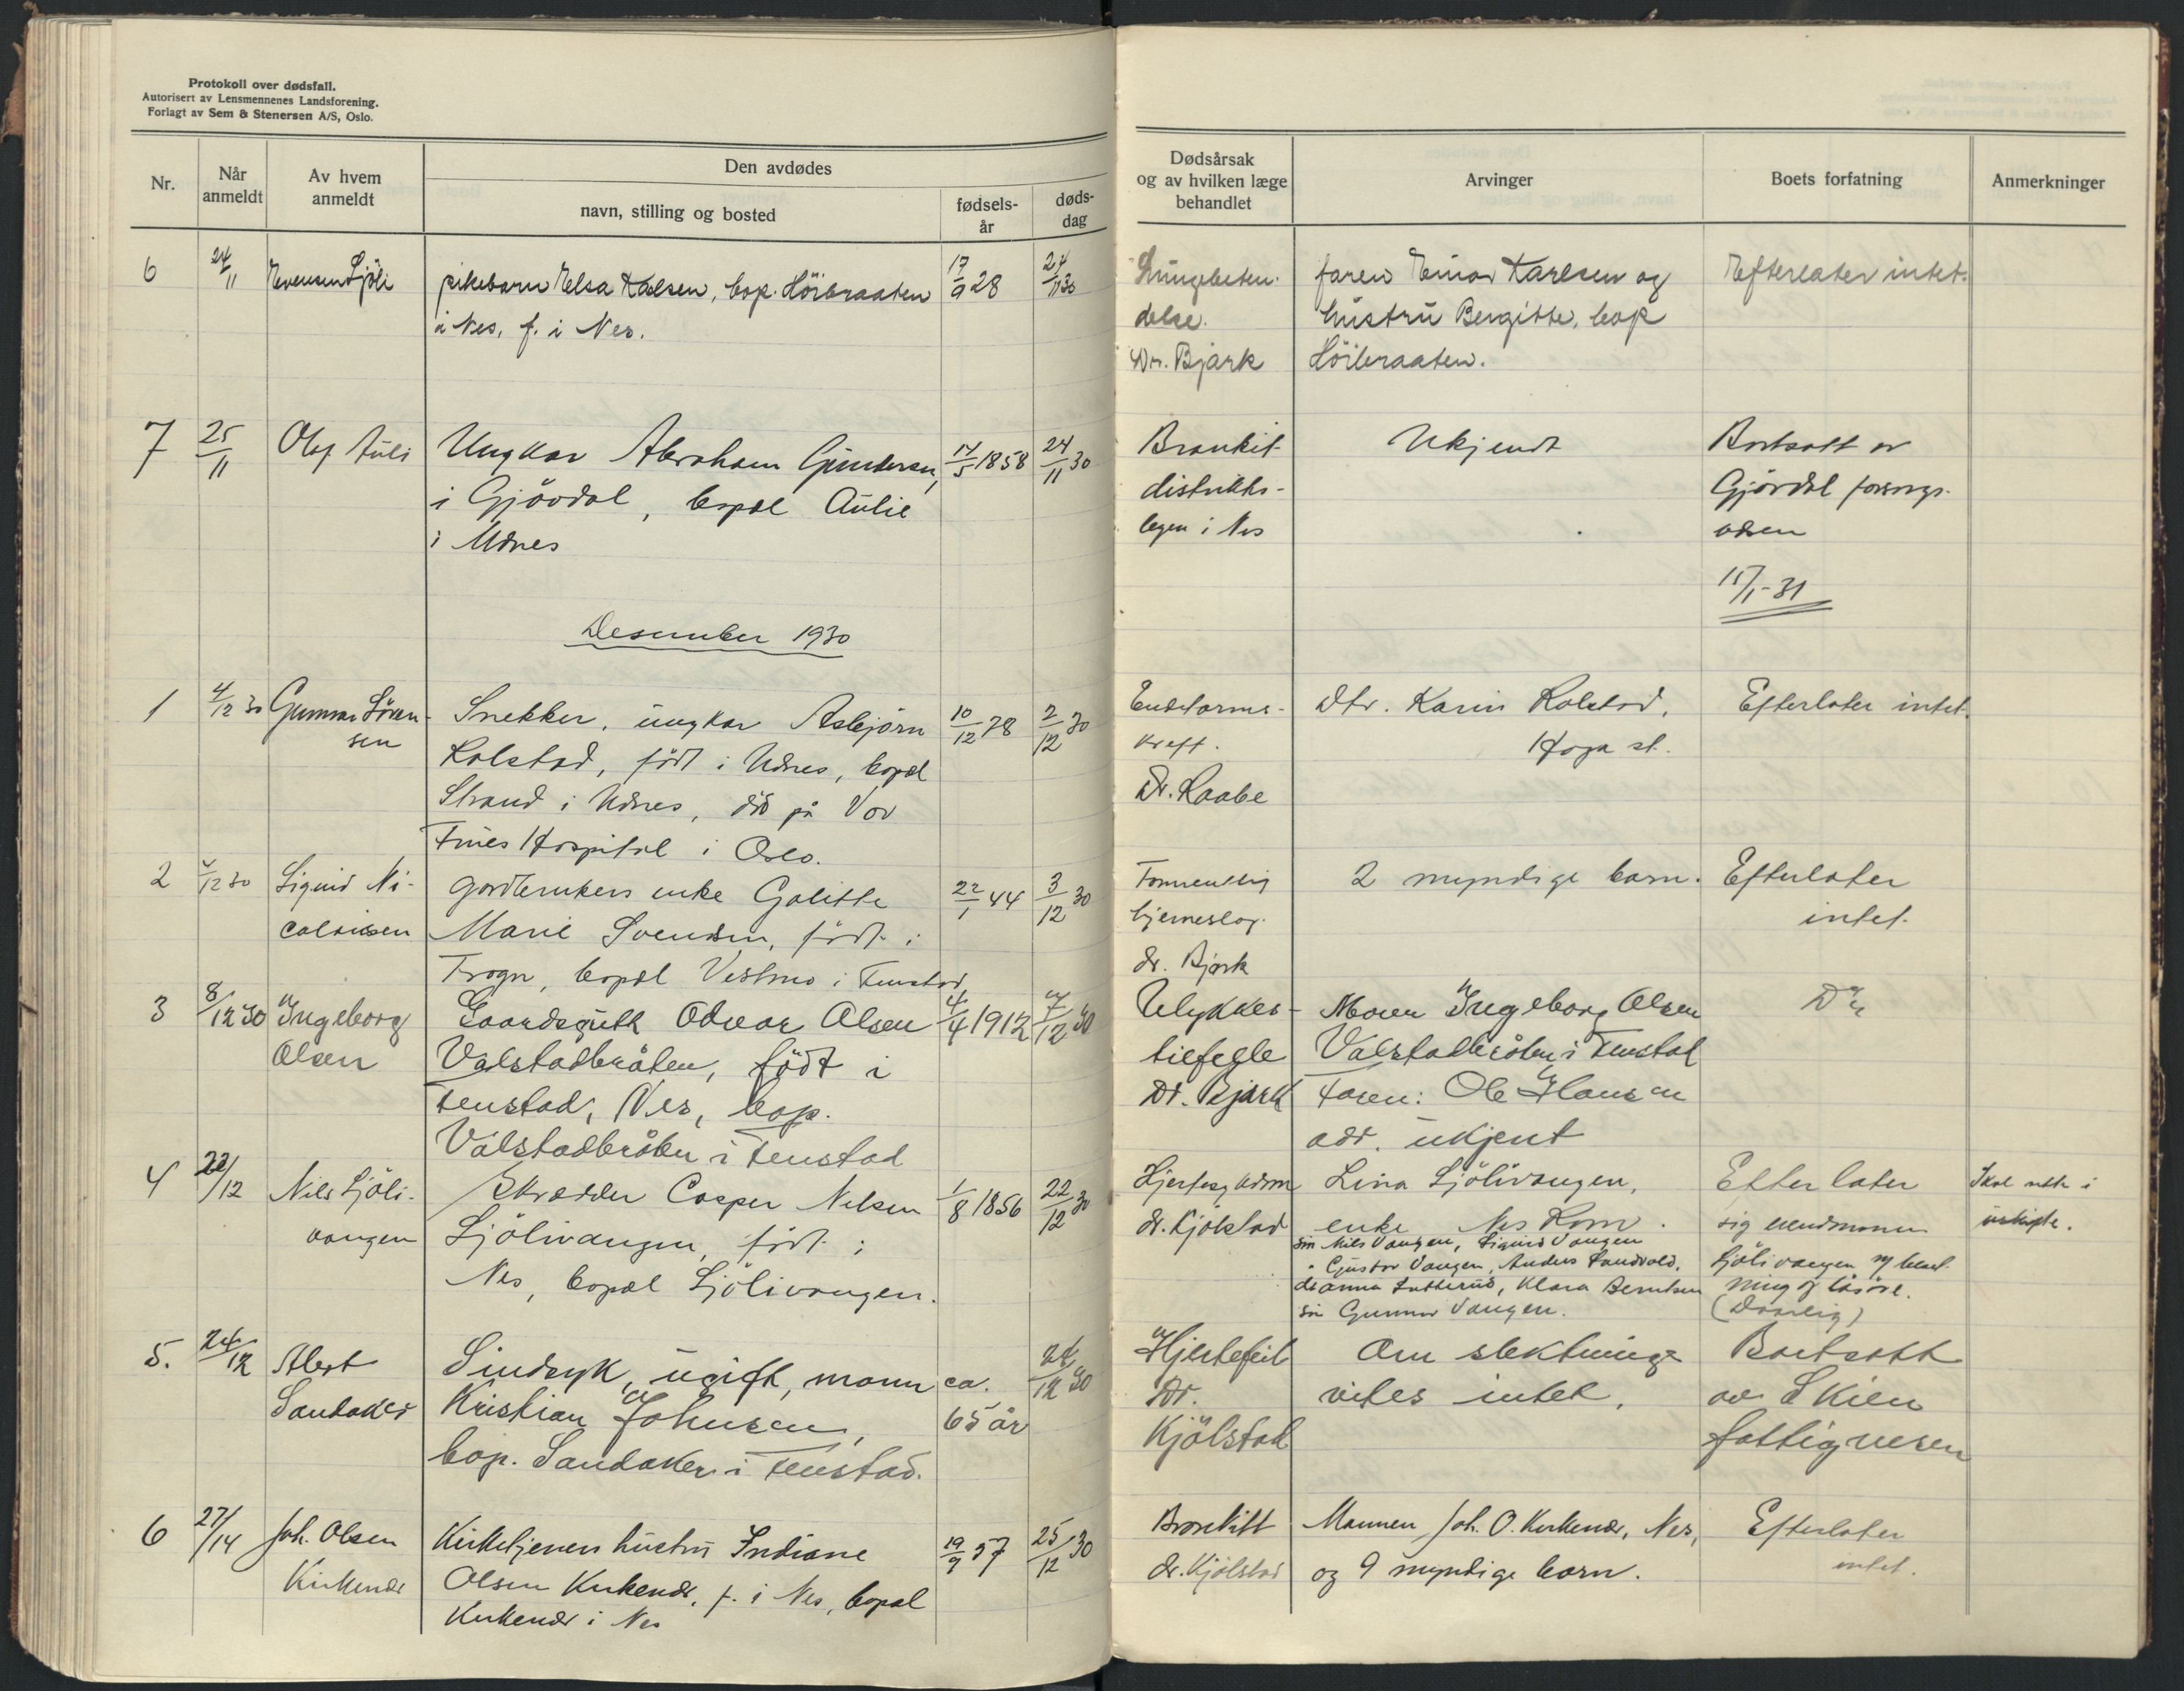 Protokoll over dødsfall.
Autorisert av Lensmennenes Landsforening.
Forlagt av Sem & Stenersen A/S, Oslo.
Nr.
Når anmeldt
Av hvem anmeldt
Den avdødes
navn, stilling og bosted
fødsels-år
døds-dag
Dødsårsak
og av hvilken læge
behandlet
Arvinger
Boets forfatning
Anmerkninger
6 24/11 Evensen Sjöli pikebarn Elsa Karlsen, bop. Höibraaten 17/9 28 24/11 30
i Nes, f. i Nes.
Lungebeten-
delse.
Dr. Bjark
faren Einar Karlsen og
hustru Bergitte, bop
Höibraaten.
Efterlater intet.
7 25/11 Olaf Auli Ungkar Abraham Gundersen, 14/5 1858 24/11 30
i Gjövdal, bopæl Aulie
i Udnes
Bronkit
distrikts-
legen i Nes
Ukjendt
Bortsatt av
Gjövdal forsorgs-
vesen
15/1-31
Desember 1930
1 4/12 30 Gunnar Sören-
sen
Snekker, ungkar Asbjörn 10/12 78 2/12 30
Rolstad, födt i Udnes, bopæl
Strand i Udnes, död på Vor
Frues Hospital i Oslo.
Endetarms-
kreft.
Dr. Raabe
Dtr. Karin Rolstad,
Haga st.
Efterlater intet.
2 5/12 30 Sigurd Ni-
colaisen
gardbrukers enke Golitte 22/1 44 3/12 30
Marie Svendsen, födt i
Trogn, bopæl Vestmo i Fenstad
hjerneslag.
dr. Bjark
2 myndige barn.
Efterlater
intet.
3 8/12 30 Ingeborg
Olsen
Gaardsgutt Odvar Olsen 4/4 1912 7/12 30
Valstadbråten, födt i
Fenstad, Nes, bop.
Valstadbråten i Fenstad
Ulykkes-
tilfelle
Dr. Bjark
Moren Ingeborg Olsen
Valstadbråten i Fenstad
Faren: Ole Hansen
adr. ukjent
Do
4 22/12 Nils Sjöli-
vangen
Skredder Casper Nilsen 1/8 1856 22/12 30
Sjölivangen, födt i
Nes, bopæl Sjölivangen.
Hjertesykdom
dr. Kjölstad
Lina Sjölivangen,
enke, Nes Rom.
sön Nils Vangen, Sigurd Vangen
" Gustav Vangen, Anders Sandvold,
Klara Berntsen
sön Gunnar Vangen.
Efterlater
sig eiendommen
Sjölivangen m/ beset-
ning og lösöre.
(Daarlig)
Skal sitte i
uskifte.
5. 24/12 Albert
Sandaker
Sindsyk, ugift, mann ca. 24/12 30
Kristian Johnsen, 65 år
bop. Sandaker i Fenstad.
Hjertefeil
Dr.
Kjölstad
Om slektninge
vites intet.
Bortsatt
av Skien
fattigvesen
6 27/14 Joh. Olsen
Kirkenær
Kirketjeners hustru Indiane 19/9 57 25/12 30
Olsen Kirkenær, f. i Nes, bopæl
Kirkenær i Nes
Bronkitt
dr. Kjölstad
Mannen Joh. O. Kirkenær, Nes,
og 9 myndige barn.
Efterlater
intet.